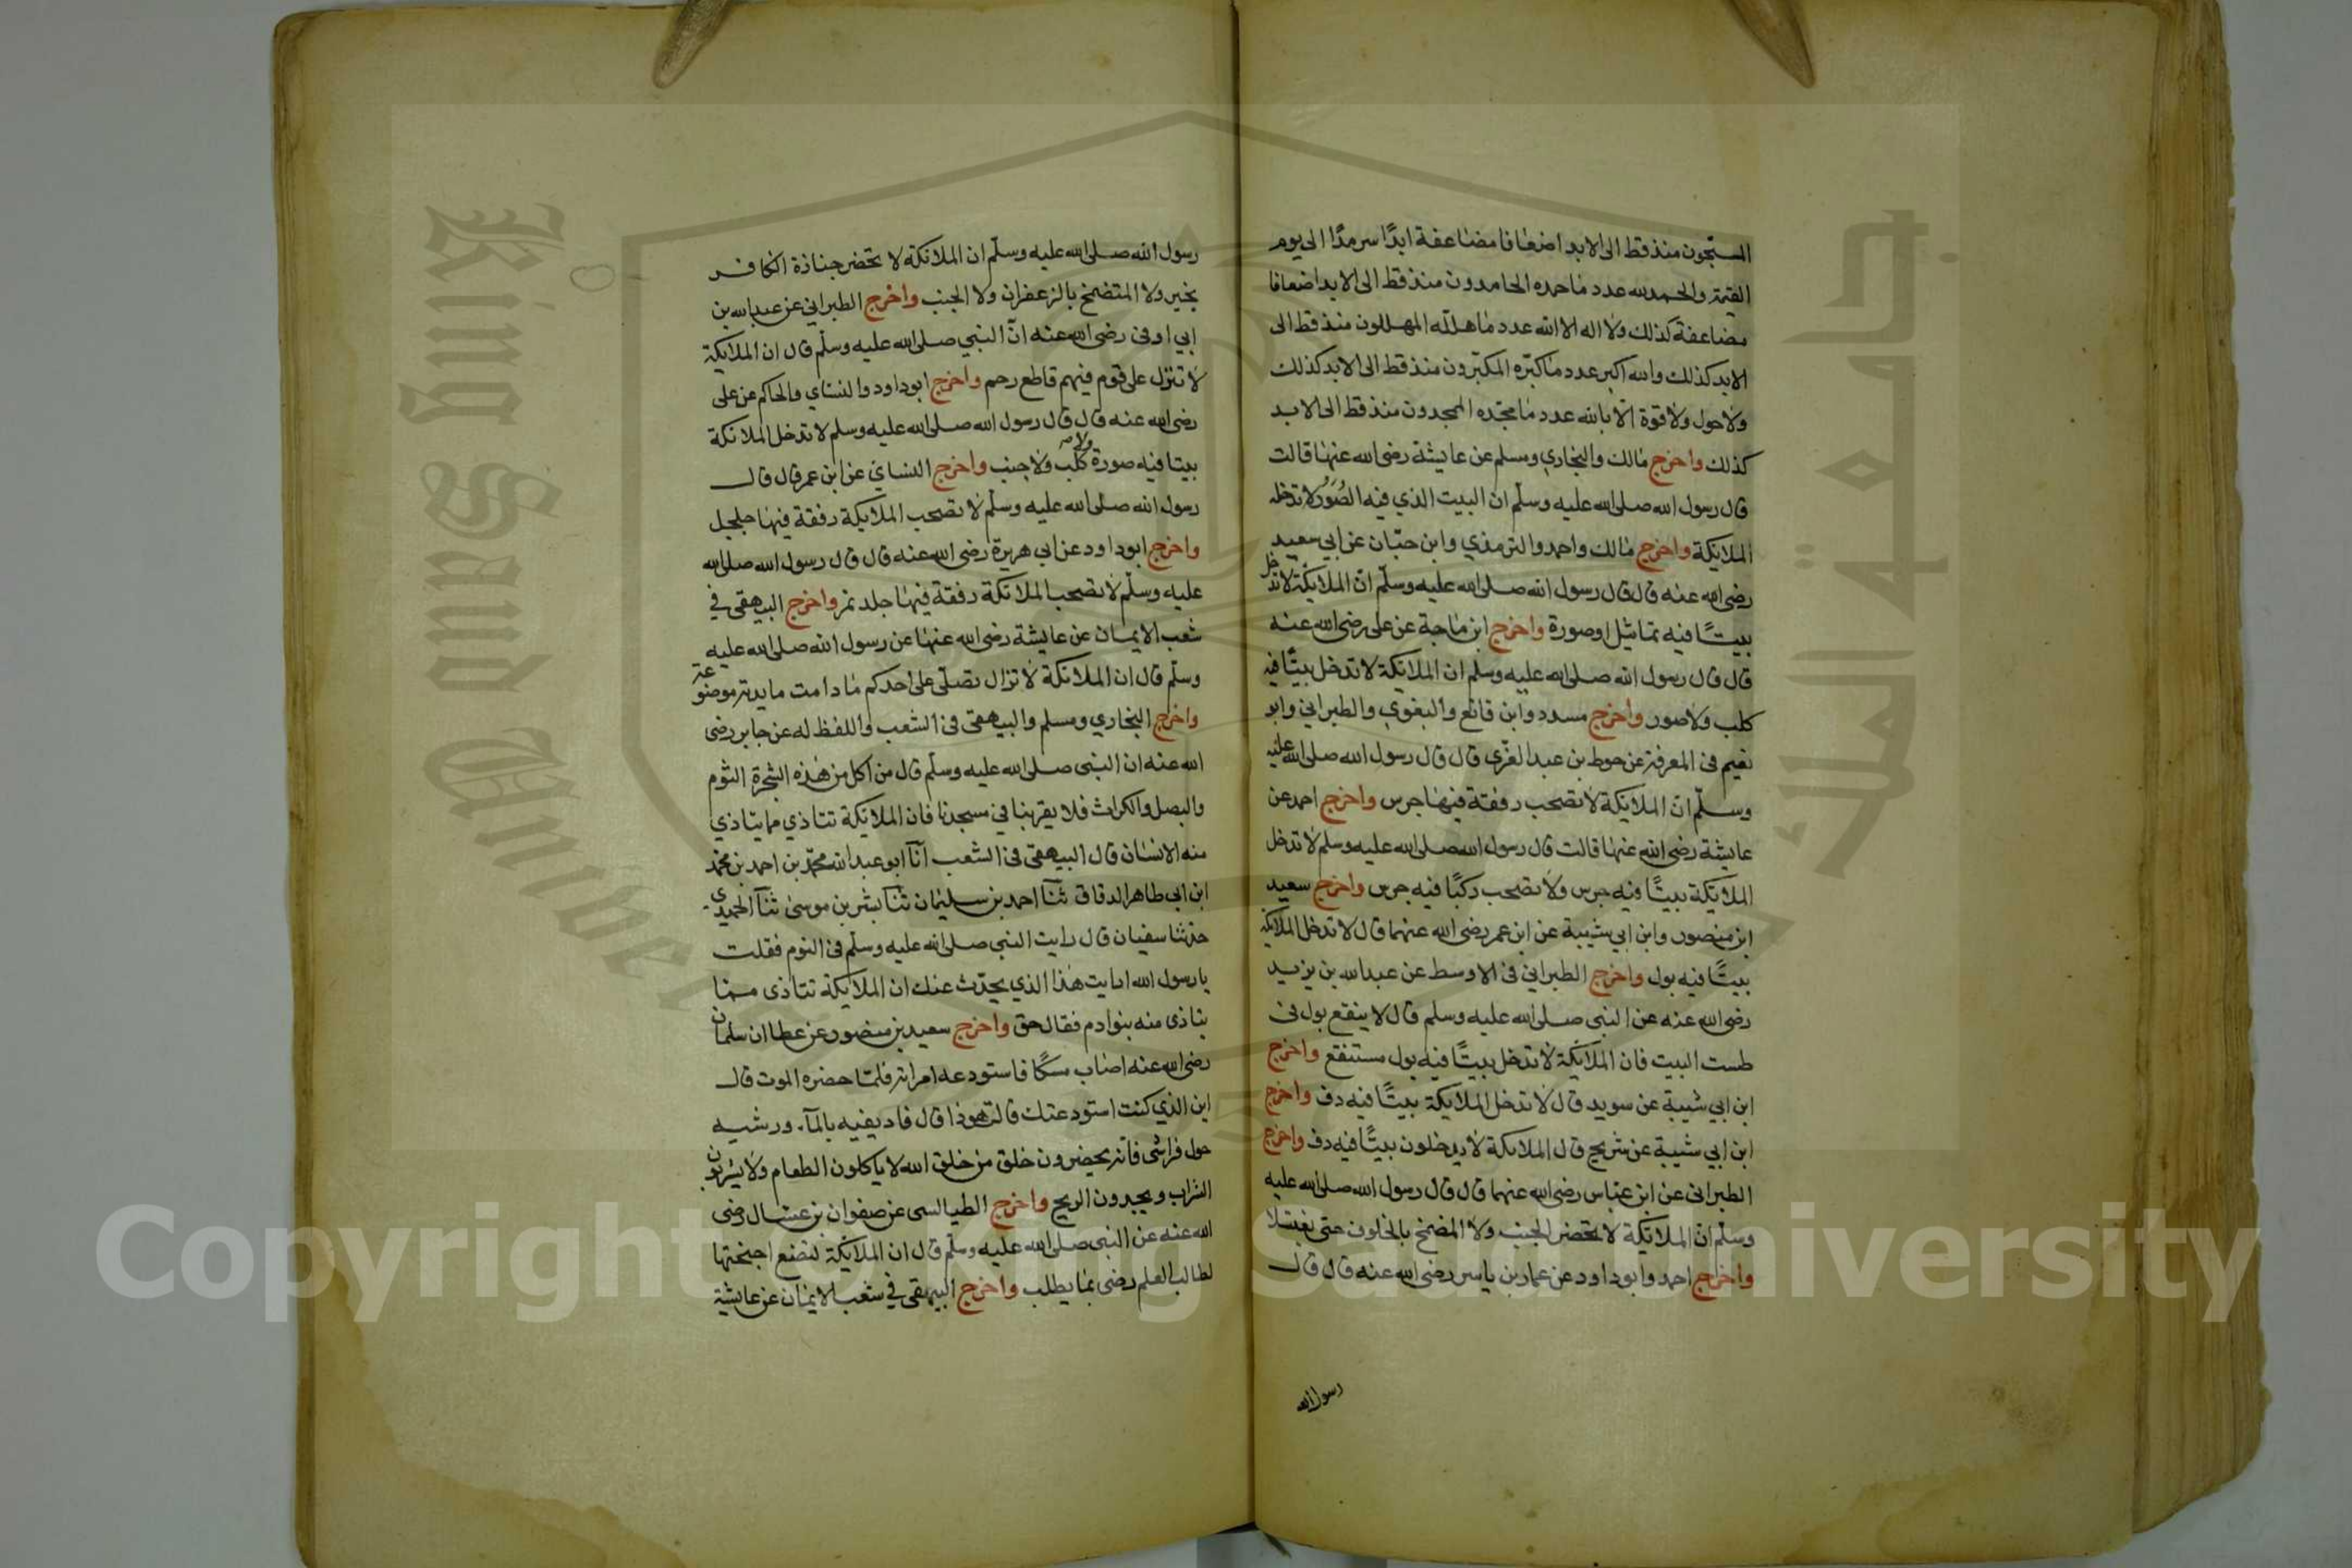 المسبّحون منذ قط الى الابد اضعافا مضاعفة ابدًا سرمدًا الى يوم
القيمة والحمد لله عدد ما حمده الحامدون منذ قط الى الابد اضعافا
مضاعفة كذلك ولا اله الا الله عدد ما هلله المهللون منذ قط الى
الابد كذلك والله اكبر عدد ما كبّره المكبّرون منذ قط الى الابد كذلك
ولا حول ولا قوة الّا بالله عدد ما مجّده الممجدون منذ قط الى الابد
كذلك واخرج مالك والبخاري ومسلم عن عايشة رضي الله عنها قالت
قال رسول الله صلى الله عليه وسلّم ان البيت الذي فيه الصُوَر لا تدخله
الملايكة واخرج مالك واحمد والترمذي وابن حبّان عن ابي سعيد
رضي الله عنه قال قال رسول الله صلى الله عليه وسلّم انّ الملايكة لا تدخل
بيتًا فيه تماثيل او صورة واخرج ابن ماجة عن على رضى الله عنه
قال قال رسول الله صلى الله عليه وسلم ان الملايكة لا تدخل بيتًا فيه
كلب ولا صور واخرج مسدد وابن قانع والبغوي والطبراني وابو
نعيم فى المعرفة عن حوط بن عبد العزّى قال قال رسول الله صلى الله عليه
وسلّم انّ الملايكة لا تصحب رفقة فيها جرس واخرج احمد عن
عايشة رضي الله عنها قالت قال رسول الله صلى الله عليه وسلم لا تدخل
الملايكة بيتًا فيه جرس ولا تصحب ركبًا فيه جرس واخرج سعيد
ابن منصور وابن ابي شيبة عن ابن عمر رضى الله عنهما قال لا تدخل الملايكة
بيتًا فيه بول واخرج الطبراني فى الاوسط عن عبد الله بن يزيد
رضي الله عنه عن النبى صلى الله عليه وسلم قال لا ينقع بول فى
طست البيت فان الملآيكة لا تدخل بيتًا فيه بول مستنقع واخرج
ابن ابي شيبة عن سويد قال لا تدخل الملايكة بيتًا فيه دف واخرج
ابن ابي شيبة عن شريح قال الملايكة لا يدخلون بيتًا فيه دف واخرج
الطبرانى عن ابن عبّاس رضى الله عنهما قال قال رسول الله صلى الله عليه
وسلّم انّ الملايكة لا تحضر الجنب ولا المضمخ بالخلوق حتى يغتسلا
واخرج احمد وابو داود عن عمار بن ياسر رضى الله عنه قال قال
رسول الله
رسول الله صلى الله عليه وسلّم ان الملائكة لا تحضر جنازة الكافر
بخير ولا المتضمخ بالزعفران ولا الجنب واخرج الطبراني عن عبد الله بن
ابي اوفى رضى الله عنه انّ النبي صلى الله عليه وسلّم قال ان الملايكة
لا تنزل على قوم فيهم قاطع رحم واخرج ابو داود والنساي والحاكم عن على
رضى الله عنه قال قال رسول الله صلى الله عليه وسلم لا تدخل الملائكة
بيتا فيه صورة ولا كلب ولا جنب واخرج النسائ عن ابن عمر قال قال
رسول الله صلى الله عليه وسلّم لا تصحب الملايكة رفقة فيها جلجل
واخرج ابو داود عن ابي هريرة رضى الله عنه قال قال رسول الله صلى الله
عليه وسلّم لا تصحب الملائكة رفقة فيها جلد نمر واخرج البيهقى في
شعب الايمان عن عايشة رضى الله عنها عن رسول الله صلى الله عليه
وسلّم قال ان الملائكة لا تزال تصلّى على احدكم ما دامت مايدته موضوعة
واخرج البخاري ومسلم والبيهقى فى الشعب واللفظ له عن جابر رضى
الله عنه ان النبى صلى الله عليه وسلّم قال من اكل من هذه الشجرة الثوم
والبصل والكراث فلا يقربنا في مسجدنا فان الملايكة تتاذي مما يتاذي
منه الانسان قال البيهقى فى الشعب آنا ابو عبد الله محمّد بن احمد بن محمد
ابن ابي طاهر الدقاق ثنآ احمد بن سليمان ثنآ بشر بن موسى ثنآ الحميدى
حدّثنا سفيان قال رايت النبى صلى الله عليه وسلّم فى النوم فقلت
يا رسول الله ارايت هذا الذي يحدّث عنك ان الملايكة تتاذى مما
يتاذى منه بنوادم فقال حق واخرج سعيد بن منصور عن عطا ان سلمان
رضي الله عنه اصاب مسكًا فاستودعه امراته فلمّا حضره الموت قال
اين الذي كنت استودعتك قالت هوذا قال فاديفيه بالمآء ورشيه
حول فراشى فانه يحضرون خلق من خلق الله لا ياكلون الطعام ولا يشربون
الشراب ويجدون الريح واخرج الطيالسى عن صفوان بن عسّال رضى
الله عنه عن النبى صلى الله عليه وسلّم قال ان الملايكة لتضع اجنحتها
لطالب العلم رضى بما يطلب واخرج البيهقى في شعب الايمان عن عايشة
جامعة الملك
King Saud Univer
Copyright © King Saud University